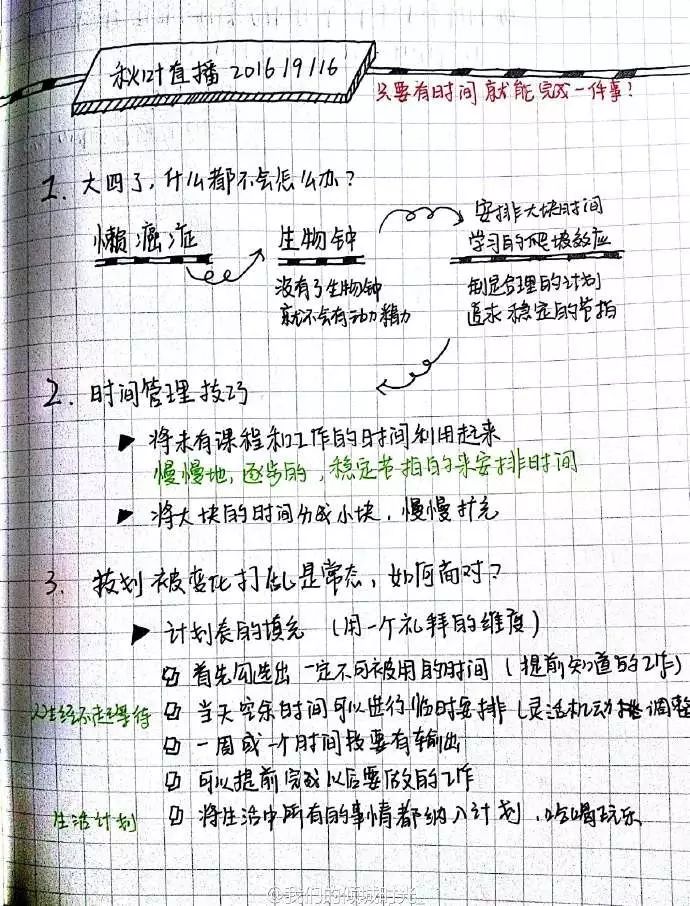 秋叶直播 2016 19/16
只要有时间就能完成一件事!
1. 大四了,什么都不会怎么办?
懒癌症
生物钟
没有了生物钟
就不会有动力精力
安排大块时间
学习的爬坡效应
制定合理的计划
追求稳定的节拍
2. 时间管理技巧
▶ 将未有课程和工作的时间利用起来
慢慢地,逐步的,稳定节拍的来安排时间
▶ 将大块的时间分成小块,慢慢扩充
3. 被变化打乱是常态,如何面对?
▶ 计划表的填充 (用一个礼拜的维度)
首先勾选出一定不可被用的时间 (提前知道的工作)
人生经不起等待
当天空余时间可以进行临时安排 (灵活机动 调整
一周或一个时间段要有输出
可以提前完成以后要做的工作
生活计划
将生活中所有的事情都纳入计划,吃喝玩乐
@我们的倾城时光